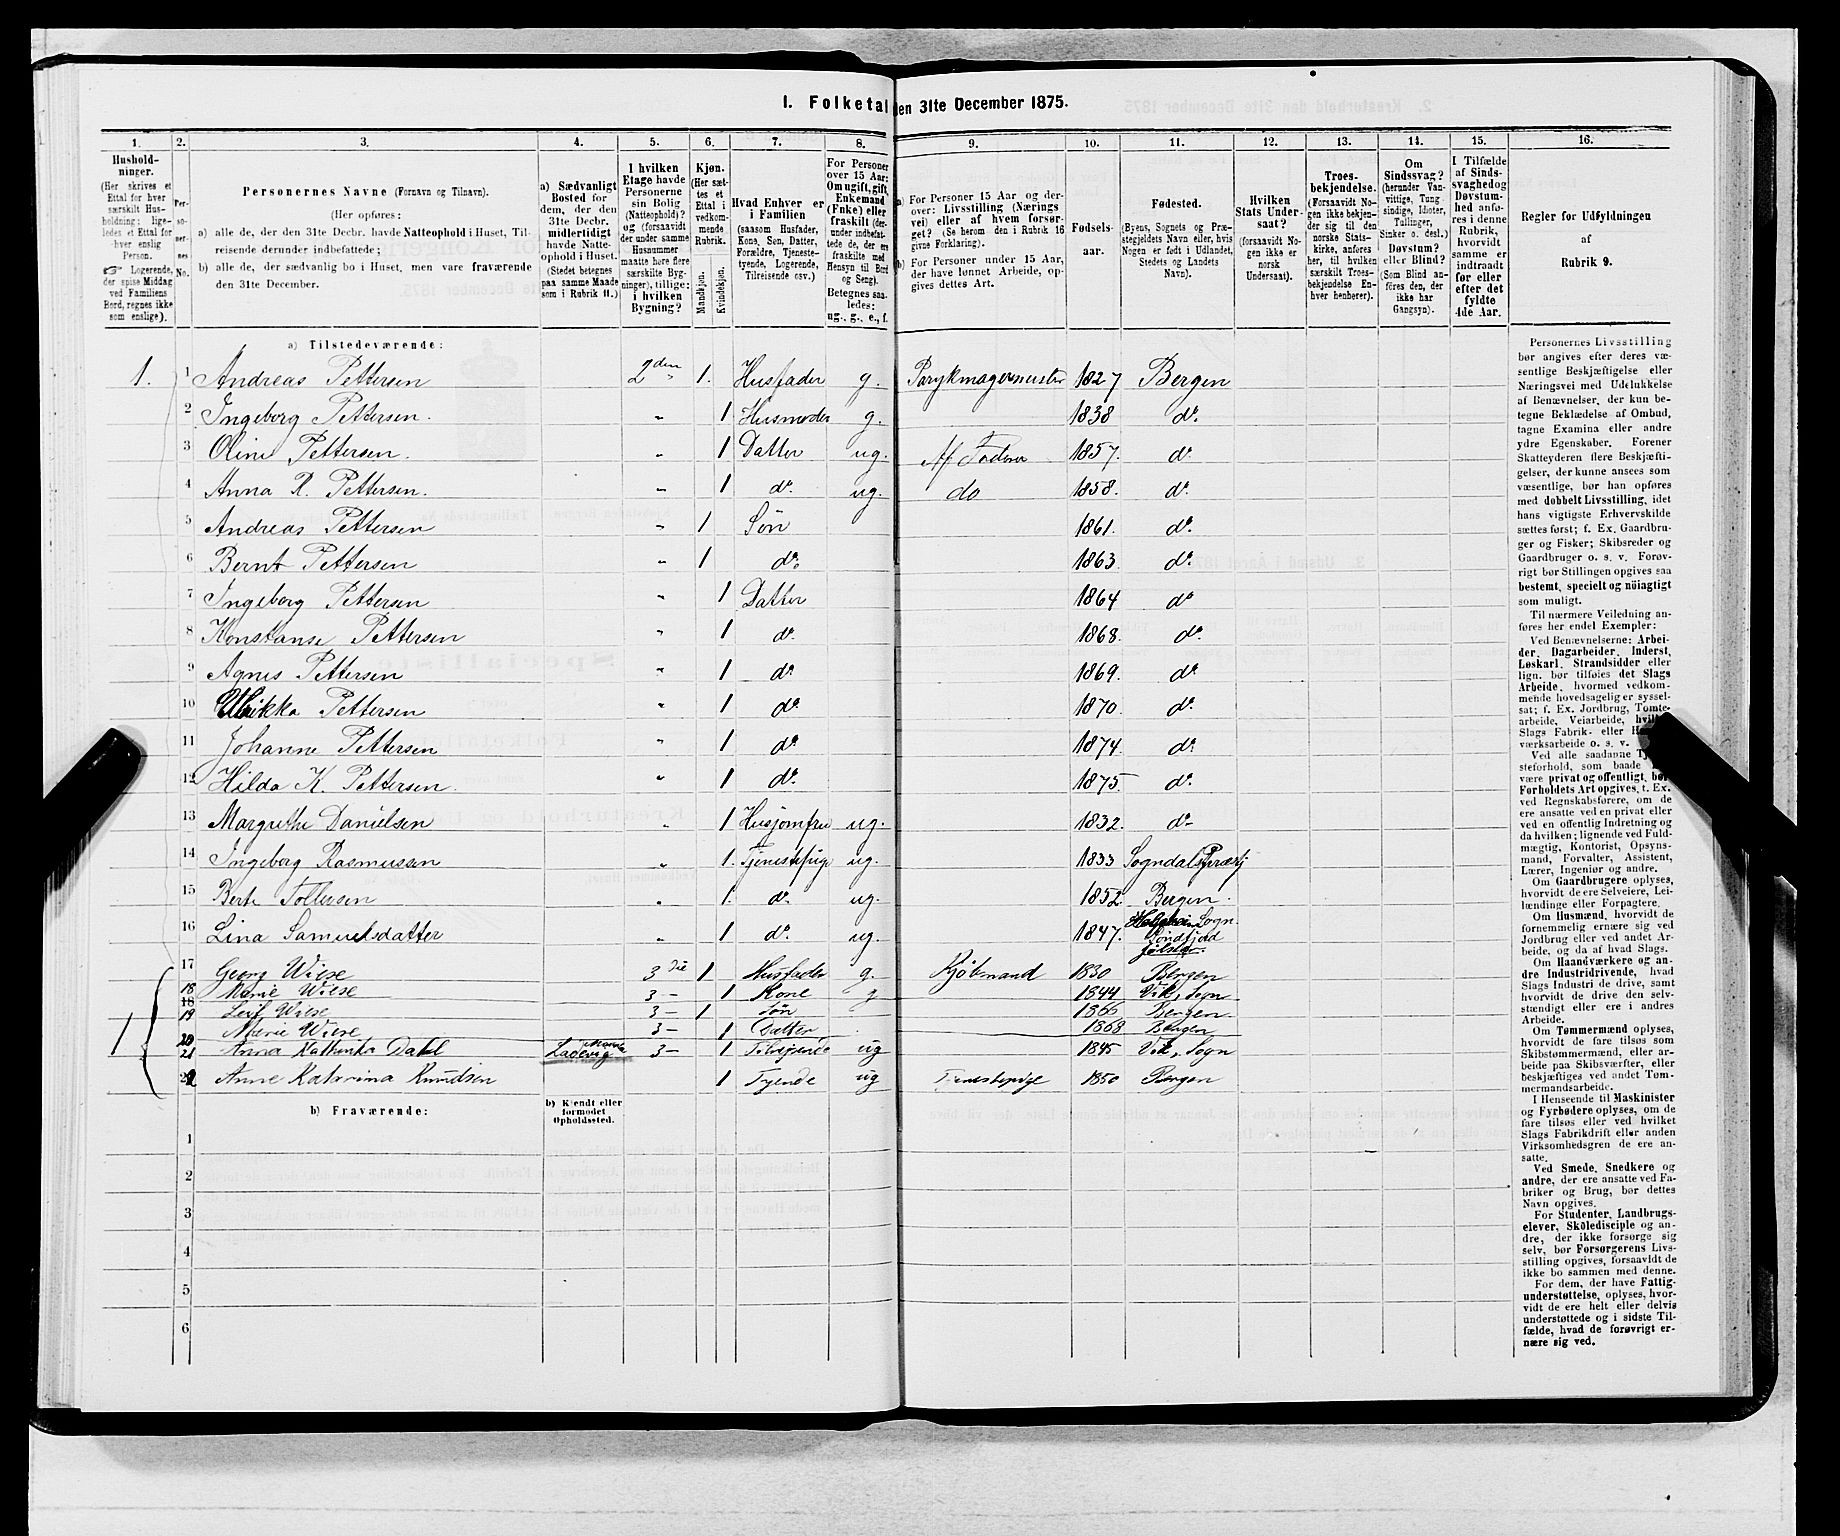 1. Folketal den 31te December 1875.
1. 2. 3. 4. 5. 6. 7. 8. 9. 10. 11. 12. 13. 14. 15. 16.
Hushold-
ninger.
(Her skrives et
Ettal for hver
særskilt Hus-
holdning; lige-
ledes et Ettal for
hver enslig
Person.
☞ Logerende,
der spise Middag
ved Familiens
Bord, regnes ikke
som enslige).
Per-
so-
ner-
nes
No.
Personernes Navne (Fornavn og Tilnavn).
(Her opføres:
a) alle de, der den 31te Decbr. havde Natteophold i Huset, Til-
reisende derunder indbefattede;
b) alle de, der sædvanlig bo i Huset, men vare fraværende
den 31te December.
a) Sædvanligt
Bosted for
dem, der den
31te Decbr.
midlertidigt
havde Natte-
ophold i Huset.
(Stedet betegnes
paa samme Maade
som i Rubrik 11.)
I hvilken
Etage havde
Personerne
sin Bolig
(Natteophold)?
og (forsaavidt
der under samme
Husnummer
maatte høre flere
særskilte Byg-
ninger), tillige:
i hvilken
Bygning?
Kjøn.
(Her sæt-
tes et
Ettal i
vedkom-
mende
Rubrik.
Mandkjøn.
Kvindekjøn.
Hvad Enhver er
i Familien
(saasom Husfader,
Kone, Søn, Datter,
Forældre, Tjeneste-
tyende, Logerende,
Tilreisende osv.)
For Personer
over 15 Aar:
Om ugift, gift,
Enkemand
(Enke) eller
fraskilt (der-
under indbefat-
tede de, der ere
fraskilte med
Hensyn til Bord
og Seng).
Betegnes saa-
ledes:
ug., g., e., f.
a) For Personer 15 Aar og der-
over: Livsstilling (Nærings
vei) eller af hvem forsør-
get? (Se herom den i Rubrik 16
givne Forklaring).
b) For Personer under 15 Aar,
der have lønnet Arbeide, op-
gives dettes Art.
Fødsels-
aar.
Fødested.
(Byens, Sognets og Præ-
stegjeldets Navn eller, hvis
Nogen er født i Udlandet,
Stedets og Landets
Navn).
Hvilken
Stats Under-
saat?
(forsaavidt No-
gen ikke er
norsk
Undersaat).
Troes-
bekjendelse.
(Forsaavidt No-
gen ikke bekjen-
der sig til den
norske Stats-
kirke, anføres
her, til hvilken
særskilt Troes-
bekjendelse En-
hver henhører).
Om
Sindssvag?
(herunder Van-
vittige, Tung
sindige, Idioter,
Tullinger,
Sinker o. desl.)
Døvstum?
eller Blind?
(Som Blind an-
føres den, der
ikke har
Gangsyn).
I Tilfælde
af Sinds-
svaghed og
Døvstum-
hed anfø-
res i denne
Rubrik,
hvorvidt
samme er
indtraadt
før eller
efter det
fyldte
4de Aar.
Regler før Udfyldningen
af
Rubrik 9.
a) Tilstedeværende:
1. 1 Andreas Pettersen 2den " 1. Husfader g. Parykmagermester 1827 Bergen
2 Ingeborg Pettersen. " 1 Husmoder g. 1838 do.
3 Oline Pettersen. " 1 Datter ug. Af Faderen 1857. do
4 Anna R. Pettersen. " 1 do. ug. do 1858. do.
5 Andreas Pettersen " 1 Søn 1861. do.
6 Bernt Pettersen " 1 do. 1863 do.
7 Ingeborg Pettersen " 1 Datter 1864 do
8 Konstanse Pettersen " 1 do. 1868. do.
9 Agnes Pettersen " 1 do. 1869. do.
10 Ulrikka Pettersen " 1 do. 1870. do.
11 Johanne Pettersen " 1 do. 1874. do.
12 Hilda K. Pettersen. " 1 do. 1875. do.
13 Margrethe Danielsen " 1 Husjomfru ug. 1832. do
14 Ingeborg Rasmussen " 1. Tjenestepige ug. 1833 Sogndals Præstgj
15 Berte Tollersen " 1. do. ug. 1852. Bergen.
16 Lina Samuelsdatter " 1 do. ug. 1847. Sogn
Søndfjord
Jølster.
17 Georg Wiese 3die 1 Husfader g. Kjøbmand 1830 Bergen
18 Marie Wiese 3 – 1 Kone g 1844 Vik, Sogn
19 Leif Wiese 3 – 1 Søn 1866 Bergen
20 Marie Wiese 3 – 1 Datter 1868 Bergen
1 21 Anna Kathinka Dahl Ladevig 3 – 1 Tilreisende ug 1845 Vik, Sogn
22 Anne Katarina Knudsen 1 Tyende ug Tjenestepige 1850 Bergen
b) Fraværende:
b) Kjendt eller
formodet
Opholdssted.
1
2
3
4
5
6
Personernes Livsstilling
bør angives efter deres væ-
sentlige Beskjæftigelse eller
Næringsvei med Udelukkelse
af Benævnelser, der kun be-
tegne Beklædelse af Ombud,
tagne Examina eller andre
ydre Egenskaber. Forener
Skatteyderen flere Beskjæfti-
gelser, der kunne ansees som
væsentlige, bør han opføres
med dobbelt Livsstilling, idet
hans vigtigste Erhvervskilde
sættes først; f. Ex. Gaardbru-
ger og Fisker; Skibsreder og
Gaardbruger o. s. v. Forøv-
rigt bør Stillingen opgives saa
bestemt, specielt og nöiagtigt
som muligt.
Til nærmere Veiledning an-
føres her endel Exempler:
Ved Benævnelserne: Arbei-
der, Dagarbeider, Inderst,
Løskarl, Strandsidder eller
lign. bør tilføies det Slags
Arbeide, hvormed vedkom-
mende hovedsagelig er syssel-
sat; f. Ex. Jordbrug, Tomte-
arbeide, Veiarbeide,
Slags Fabrik- eller
værksarbeide o. s. v.
Ved alle saadanne
steforhold, som baade
være privat og offentligt, bør
Forholdets Art opgives, t. Ex.
ved Regnskabsførere, om de
ere ansatte ved en privat eller
ved en offentlig Indretning og
da hvilken; lignende ved Fuld-
mægtig, Kontorist, Opsyns-
mand, Forvalter, Assistent,
Lærer, Ingeniør og andre.
Om Gaardbrugere oplyses,
hvorvidt de ere Selveiere, Lei-
lændinge eller Forpagtere.
Om Husmænd, hvorvidt de
fornemmelig ernære sig ved
Jordbrug eller ved andet Ar-
beide, og da af hvad Slags.
Om Haandværkere og an-
dre Industridrivende, hvad
Slags Industri de drive, samt
hvorvidt de drive den selv-
stændigt eller ere i andres
Arbeide.
Om Tømmermænd oplyses,
hvorvidt de fare tilsøs som
Skibstømmermænd, eller ar-
beide paa Skibsværfter, eller
beskjæftiges ved andet Tøm-
mermandsarbeide.
I Henseende til Maskinister
og Fyrbødere oplyses, om de
fare tilsøs eller ved hvilket
Slags Fabrikdrift eller anden
Virksomhedsgren de ere an-
satte.
Ved Smede, Snedkere og
andre, der ere ansatte ved Fa-
briker og Brug, bør dettes
Navn opgives.
For Studenter, Landbrugs-
elever, Skoledisciple og an-
dre, der ikke forsørge sig
selv, bør Forsørgerens Livs-
stilling opgives, forsaavidt de
ikke bo sammen med denne.
For dem, der have Fattig-
understøttelse, oplyses, hvor-
vidt de ere helt eller delvis
understøttede og i sidste Til-
fælde, hvad de forøvrigt er-
nære sig ved.